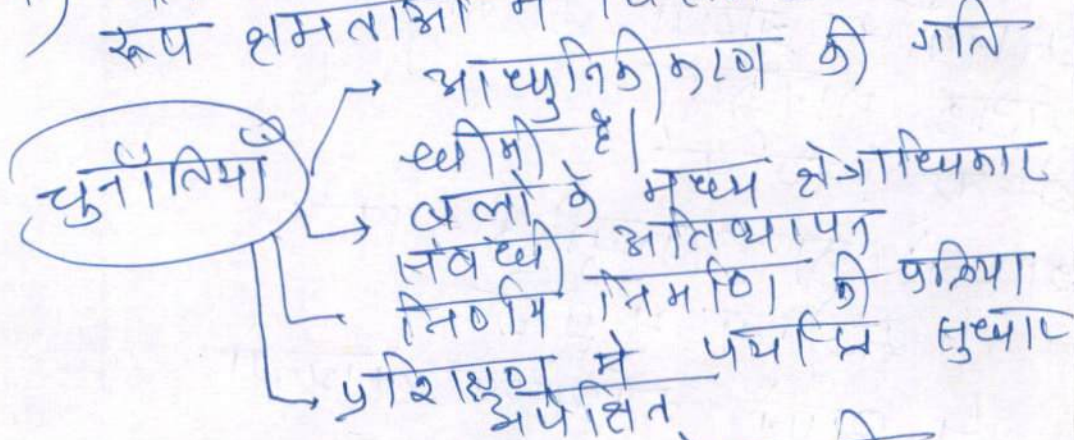 रूप क्षमताओं में
आधुनिकीकरण की गति
धीमी है।
चुनौतियाँ
बलों के मध्य क्षेत्राधिकार
संबंधी अतिव्यापन
निर्णय निर्माण की प्रक्रिया
प्रशिक्षण में पर्याप्त सुधार
अपेक्षित